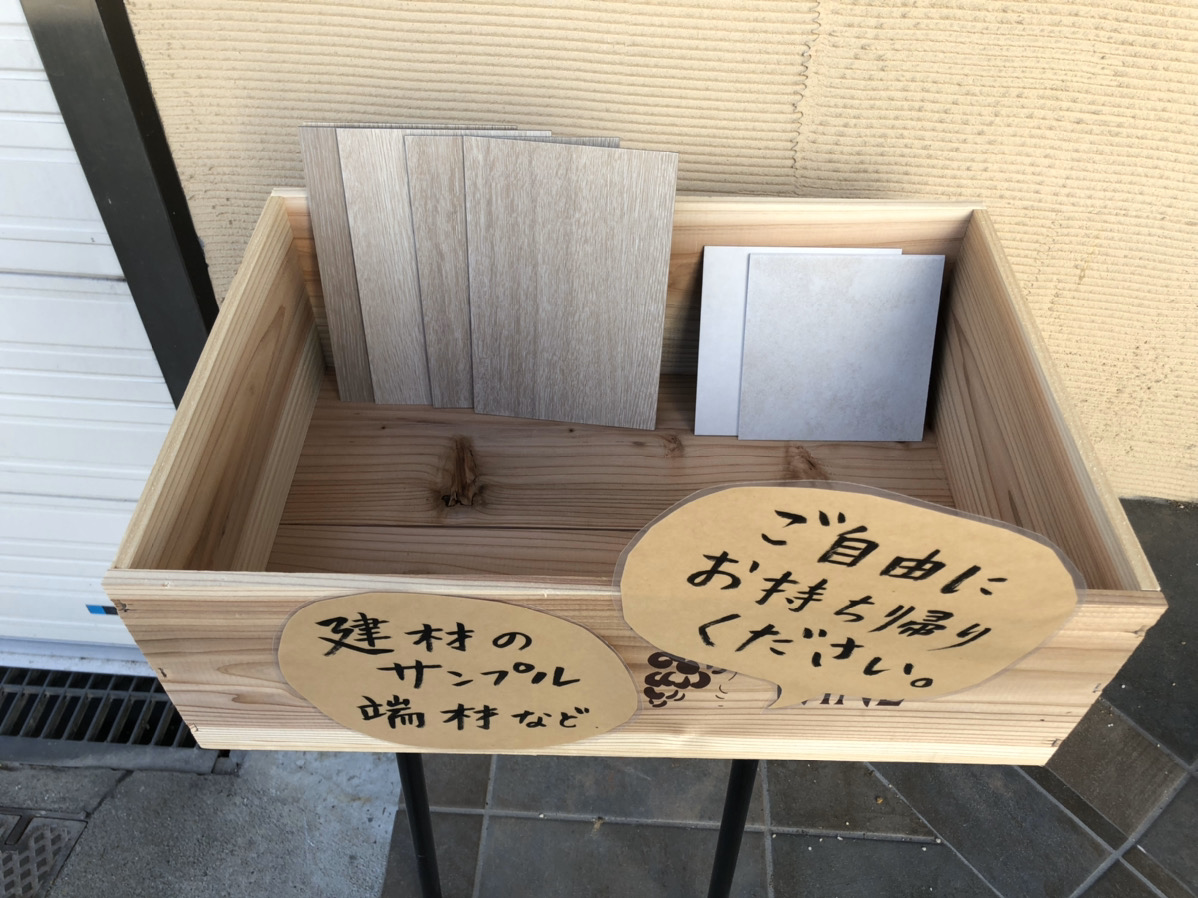 建材の
サンプル
端材など
ご自由に
お持ち帰り
ください。